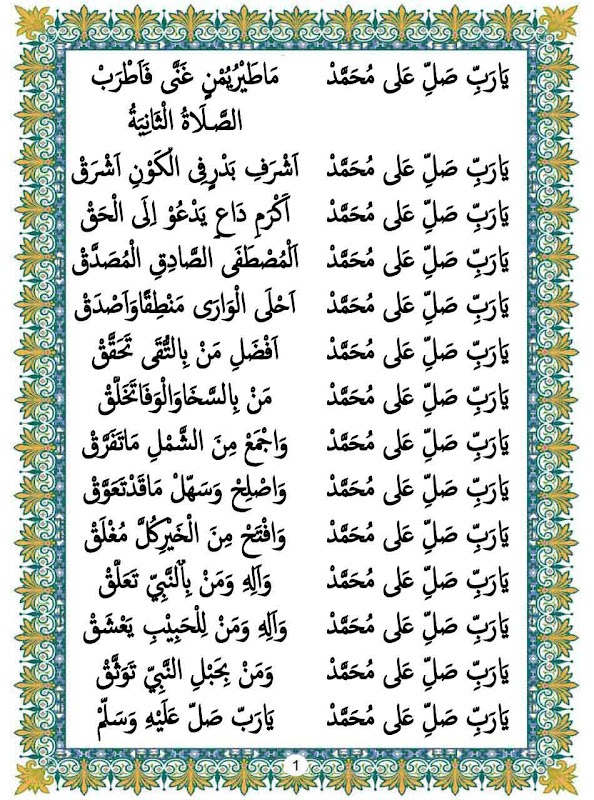 يَارَبِّ صَلِّ عَلى مُحَمَّدْ مَاطَيْرُيُمْنٍ غَنَّى فَاَطْرَبْ
الصَّلَاةُ الْثَانِيَةُ
يَارَبِّ صَلِّ عَلى مُحَمَّدْ اَشْرَفِ بَدْرٍفِى الْكَوْنِ اَشْرَقْ
يَارَبِّ صَلِّ عَلى مُحَمَّدْ اَكْرَمِ دَاعٍ يَدْعُوْ اِلَى الْحَقْ
يَارَبِّ صَلِّ عَلى مُحَمَّدْ اَلْمُصْطَفَى الصَّادِقِ الْمُصَدَّقْ
يَارَبِّ صَلِّ عَلى مُحَمَّدْ اَحْلَى الْوَارَى مَنْطِقًاوَاَصْدَقْ
يَارَبِّ صَلِّ عَلى مُحَمَّدْ اَفْضَلِ مَنْ بِالتُّقَى تَحَقَّقْ
يَارَبِّ صَلِّ عَلى مُحَمَّدْ مَنْ بِالسَّخَاوَالْوَفَاتَخَلَّقْ
يَارَبِّ صَلِّ عَلى مُحَمَّدْ وَاجْمَعْ مِنَ الشَّمْلِ مَاتَفَرَّقْ
يَارَبِّ صَلِّ عَلى مُحَمَّدْ وَاصْلِحْ وَسَهّلْ مَاقَدْتَعَوَّقْ
يَارَبِّ صَلِّ عَلى مُحَمَّدْ وَافْتَحْ مِنَ الْخَيْرِكُلَّ مُغْلَقْ
يَارَبِّ صَلِّ عَلى مُحَمَّدْ وَآلِهِ وَمَنْ بِاْلنَّبِيّ تَعَلَّقْ
يَارَبِّ صَلِّ عَلى مُحَمَّدْ وَآلِهِ وَمَنْ لِلْحَبِيْبِ يَعْشَقْ
يَارَبِّ صَلِّ عَلى مُحَمَّدْ وَمَنْ بِحَبْلِ النَّبِيّ تَوَثَّقْ
يَارَبِّ صَلِّ عَلى مُحَمَّدْ يَارَبّ صَلّ عَلَيْهِ وَسَلِّمْ
1